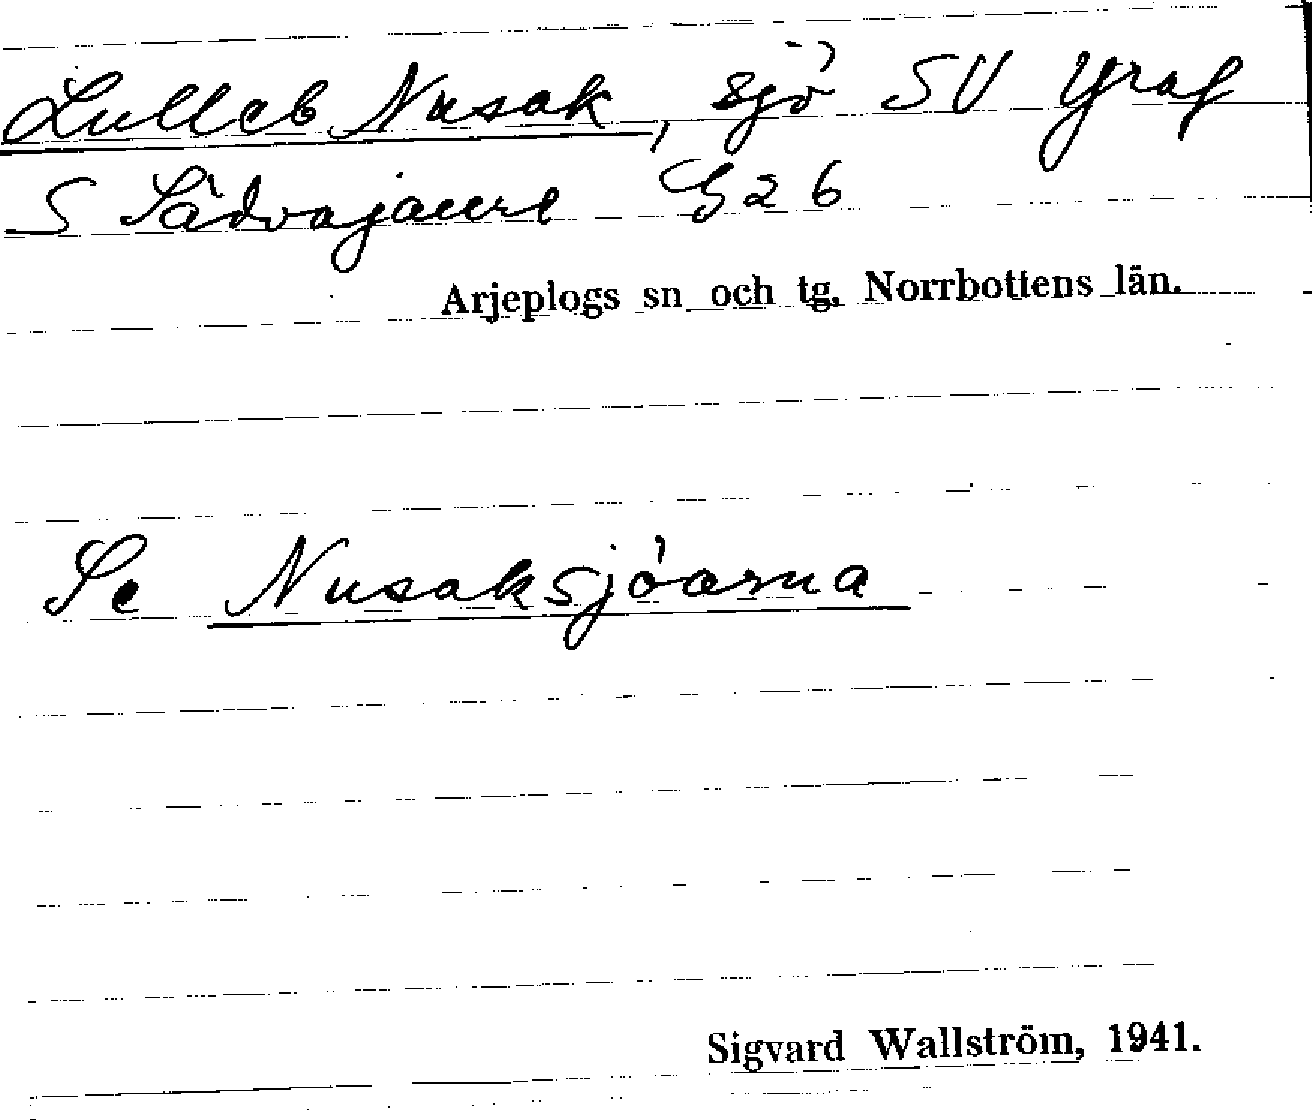 Lulleb Nusak, sjö SV Yraf
S Sädvajaure G 26
Arjeplogs sn och tg. Norrbottens län.
Se Nusaksjöarna
Sigvard Wallström, 1941.